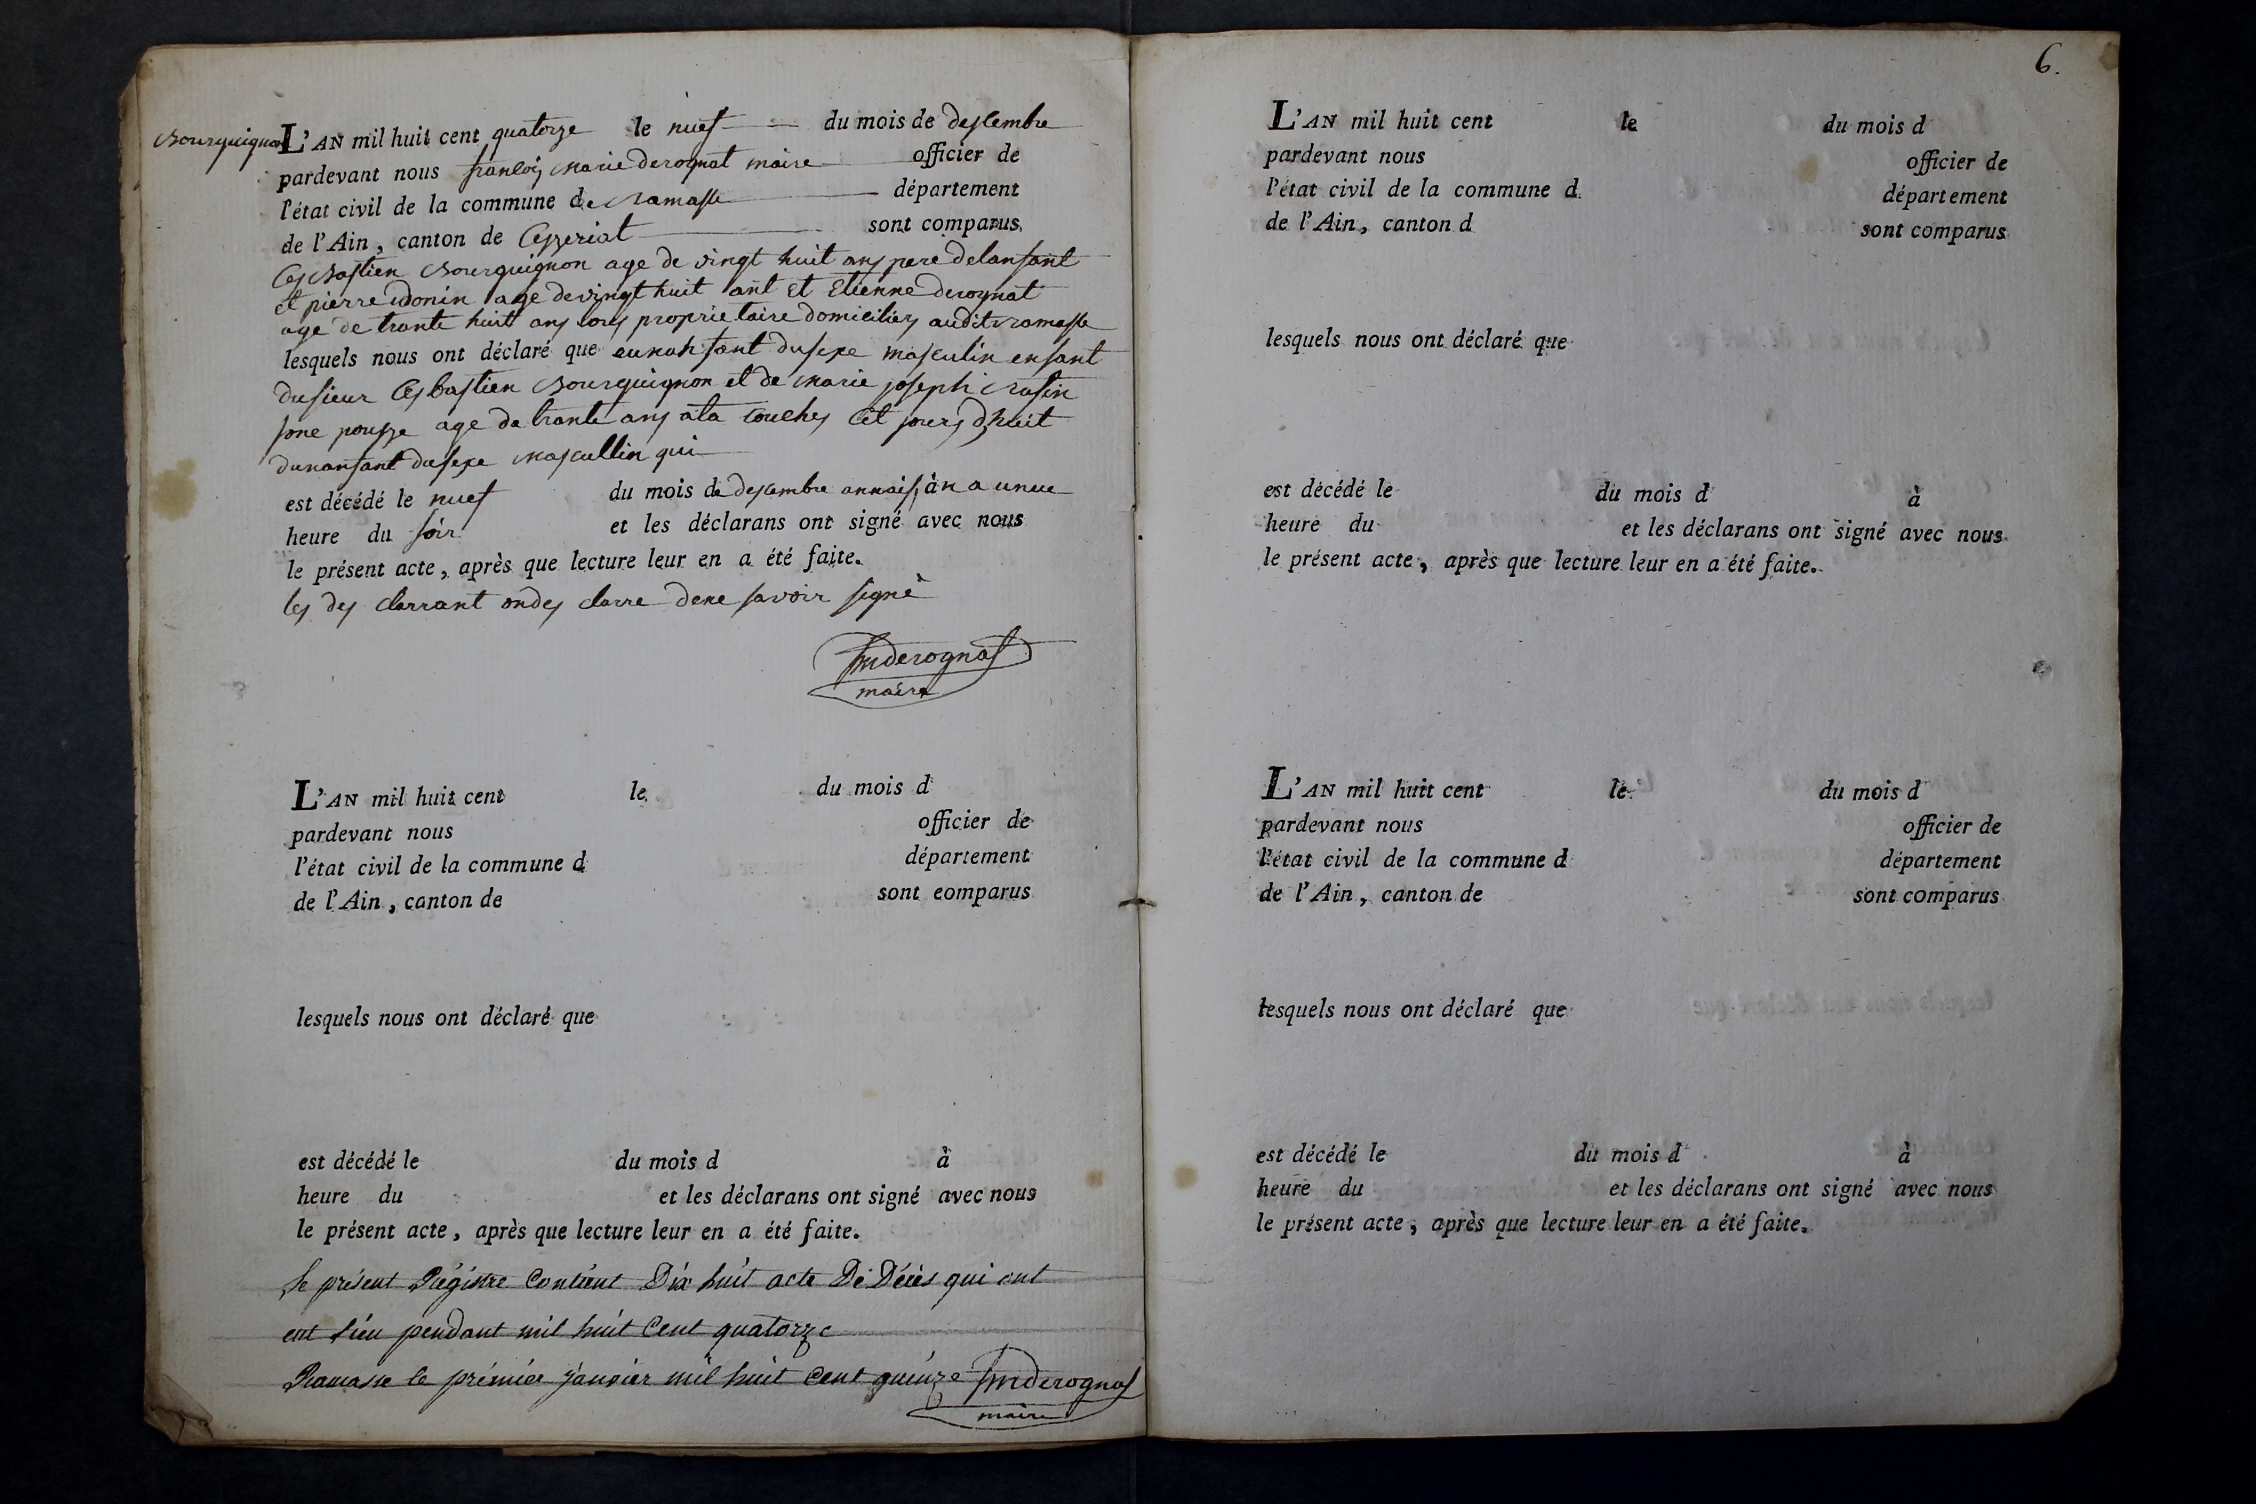 Bourguignon
L'AN mil huit cent quatorze le nuef du mois de descembre
pardevant nous francois marie derognat maire officier de
l'état civil de la commune de ramasse département
de l'Ain, canton de Ceyzeriat sont comparus
Ces Bastien Bourguignon age de vingt huit ans pere delanfant
et pierre donin age devingt huit ant et Etienne derognat
age de trante huit ans tous proprietaire domiciliés audit ramasse
lesquels nous ont déclaré que eunonfant dusexe masculin enfant
dusieur Cesbastien Bourguignon et de marie joseph
sone pousze age da trante ans ata couches cet jours dhuit
dunanfant dusexe mascullin qui
est décédé le nuef du mois de descembre à
heure du soir et les déclarans ont signé avec nous
le présent acte, après que lecture leur en a été faite.
les des clarrant ondes clarre dene savoir signé
fmderognat
maire
L'AN mil huit cent le du mois d
pardevant nous officier de
l'état civil de la commune d département
de l'Ain, canton de sont eomparus
lesquels nous ont déclaré que
est décédé le du mois d à
heure du et les déclarans ont signé avec nous
le présent acte, après que lecture leur en a été faite.
Le présent Régistre Contient Dix huit acte De Décès qui ont
eut Lieu pendant mil huit Cent quatorze
Ramasse le prémier janvier mil huit Cent quinze fmderognat
maire
6.
L'AN mil huit cent le du mois d
pardevant nous officier de
l'état civil de la commune d département
de l'Ain, canton d sont comparus
lesquels nous ont déclaré que
est décédé le du mois d à
heure du et les déclarans ont signé avec nous
le présent acte, après que lecture leur en a été faite.
L'AN mil huit cent le du mois d
pardevant nous officier de
l'état civil de la commune d département
de l'Ain, canton de sont comparus
lesquels nous ont déclaré que
est décédé le du mois d à
heure du et les déclarans ont signé avec nous
le présent acte, après que lecture leur en a été faite.